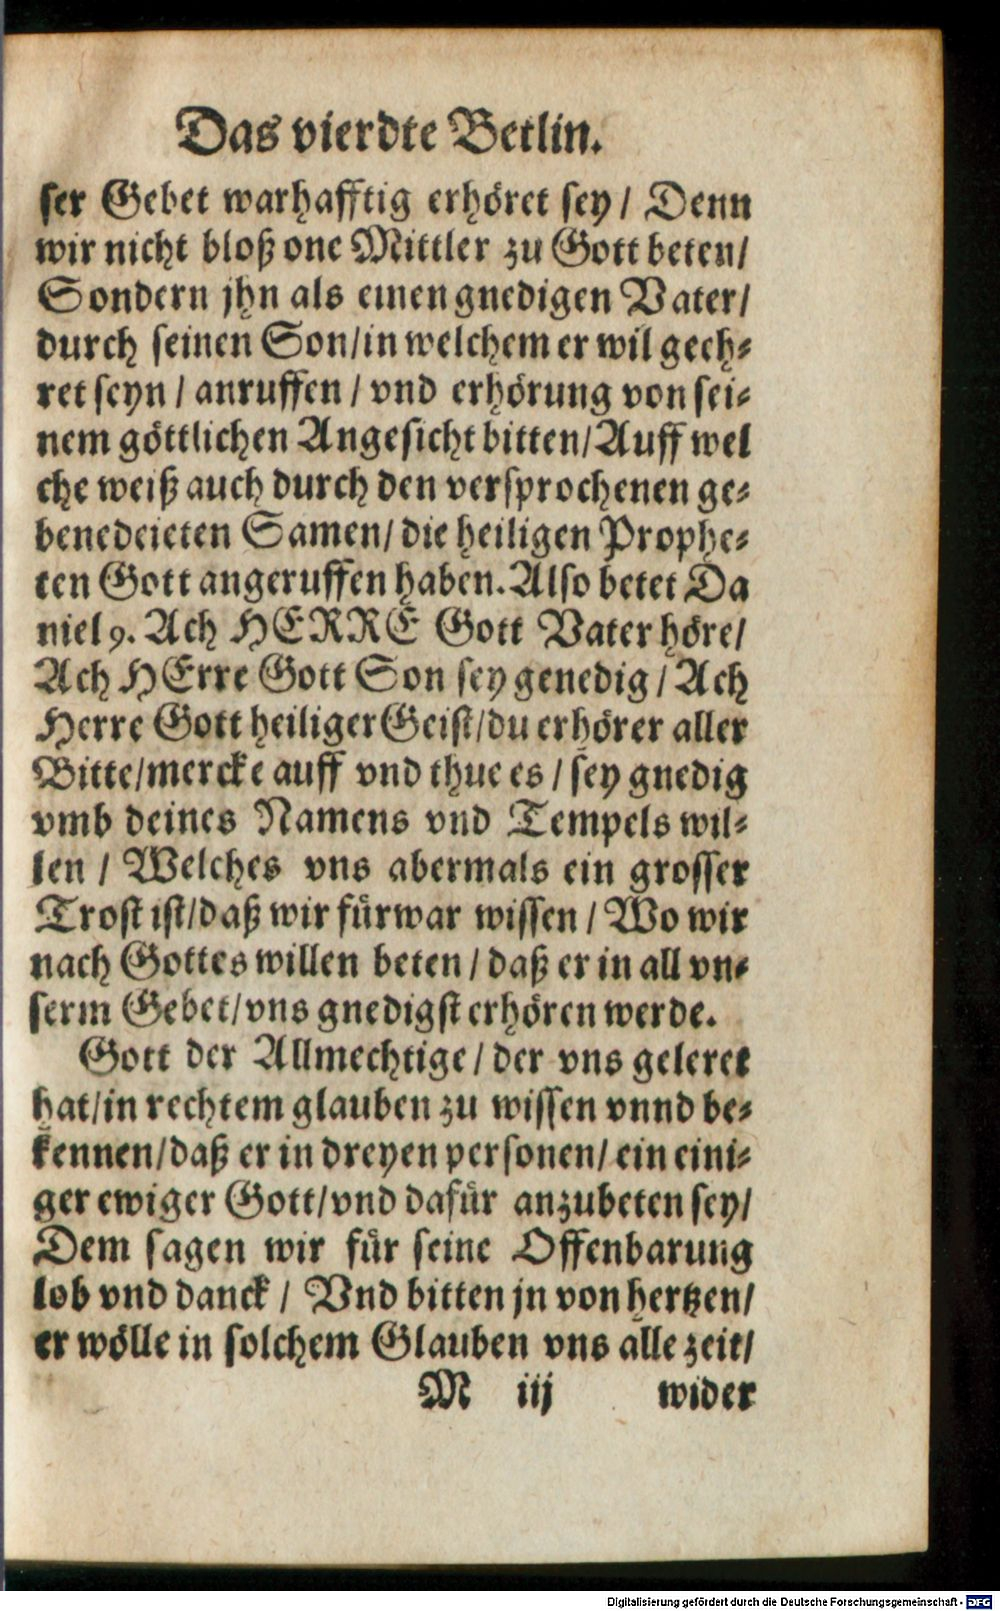 Das vierdte Betlin.
ser Gebet warhafftig erhöret sey / Denn
wir nicht bloß one Mittler zu Gott beten/
Sondern jhn als einen gnedigen Vater/
durch seinen Son/in welchem er wil geeh-
ret seyn / anruffen / vnd erhörung von sei-
nem göttlichen Angesicht bitten/Auff wel
che weiß auch durch den versprochenen ge-
benedeieten Samen/die heiligen Prophe-
ten Gott angeruffen haben. Also betet Da
niel 9. Ach HERRE Gott Vater höre/
Ach HErre Gott Son sey genedig / Ach
Herre Gott heiliger Geist/du erhörer aller
Bitte/mercke auff vnd thue es / sey gnedig
vmb deines Namens vnd Tempels wil-
len / Welches vns abermals ein grosser
Trost ist/daß wir fürwar wissen / Wo wir
nach Gottes willen beten / daß er in all vn-
serm Gebet/vns gnedigst erhören werde.
Gott der Allmechtige / der vns geleret
hat/in rechtem glauben zu wissen vnnd be-
kennen/daß er in dreyen personen/ ein eini-
ger ewiger Gott/vnd dafür anzubeten sey/
Dem sagen wir für seine Offenbarung
lob vnd danck / Vnd bitten jn von hertzen/
er wölle in solchem Glauben vns alle zeit/
M iij wider
Digitalisierung gefördert durch die Deutsche Forschungsgemeinschaft - DFG